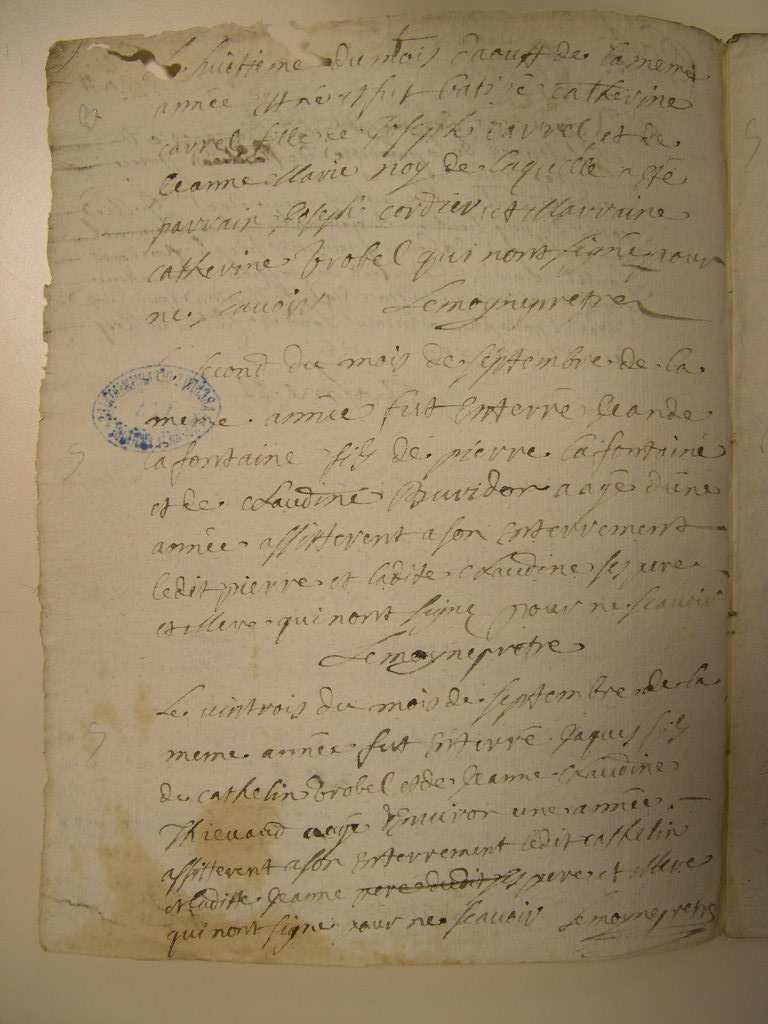 Le huitieme du mois daoust de la meme
année est né et fut batisé catherine
carrel fille de Joseph carrel et de
Jeanne Marie noy de laquelle a esté
parrain Joseph cordier et Marraine
catherine trobel qui nont signé pour
ne scavoir Lemoyne pretre
second du mois de septembre de la
meme année fut Enterré Jean de
la fontaine fils de pierre la fontaine
et de claudine Buvidor aagé dune
année assitterent a son enterrement
ledit pierre et ladite claudine ses pere
et Mere qui nont signé pour ne scavoir
Lemoyne pretre
Le vintrois du mois de septembre de la
meme année fut Enterré Jaques fils
de cathelin trobel et de Jeanne claudine
Thievaud aagé d'Environ une année
assitterent a son enterrement ledit cathelin
et ladite Jeanne pere dudit ses pere et Mere
qui nont signé pour ne scavoir Lemoyne pretre